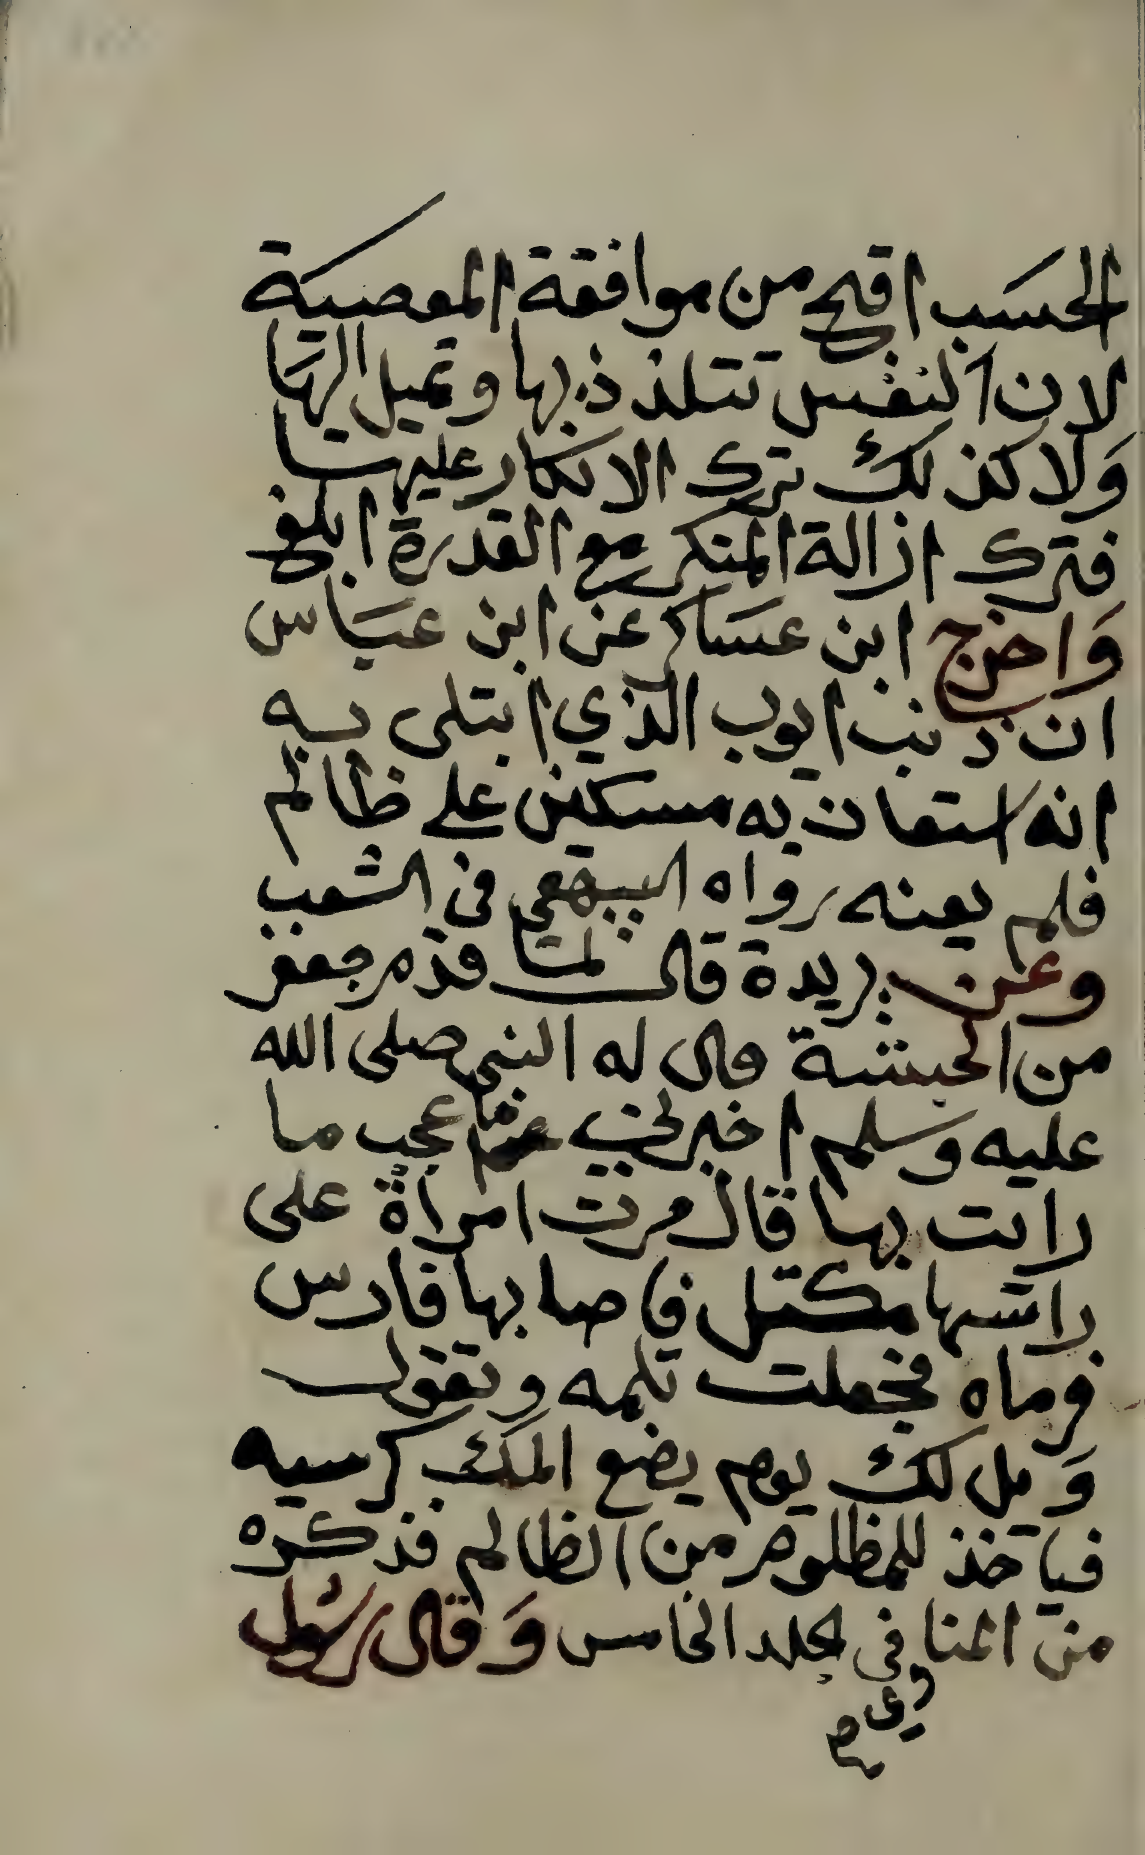 الحسَب اقبح من موافقة المعصية
لان النفس تتلذذ بها وتميل اليها
وَلا كذلك ترك الانكار عليها
فترك ازالة المنكر مع القدرة ابلغ
وَاخرج ابن عسَاكر عن ابن عبَاس
ان ذنب ايوب الذي ابتلى به
انه استعان به مسكين على ظالم
فلم يعنه رواه البيهقي في الشعب
وعن بريدة قال لمّا قدم جعفر
من الحبشة قال له النبي صلى الله
عليه وَسلم اخبرني عجب ما
رايت بها قال مرت امراة على
راسها مكتل فاصابها فارس
فرماه فجعلت تلمه وتقول
وَيل لك يوم يضع الملك كرسيه
فياخذ للمظلوم من الظالم فذكره
من المنا في الجلد الخامس وَقال رسُول